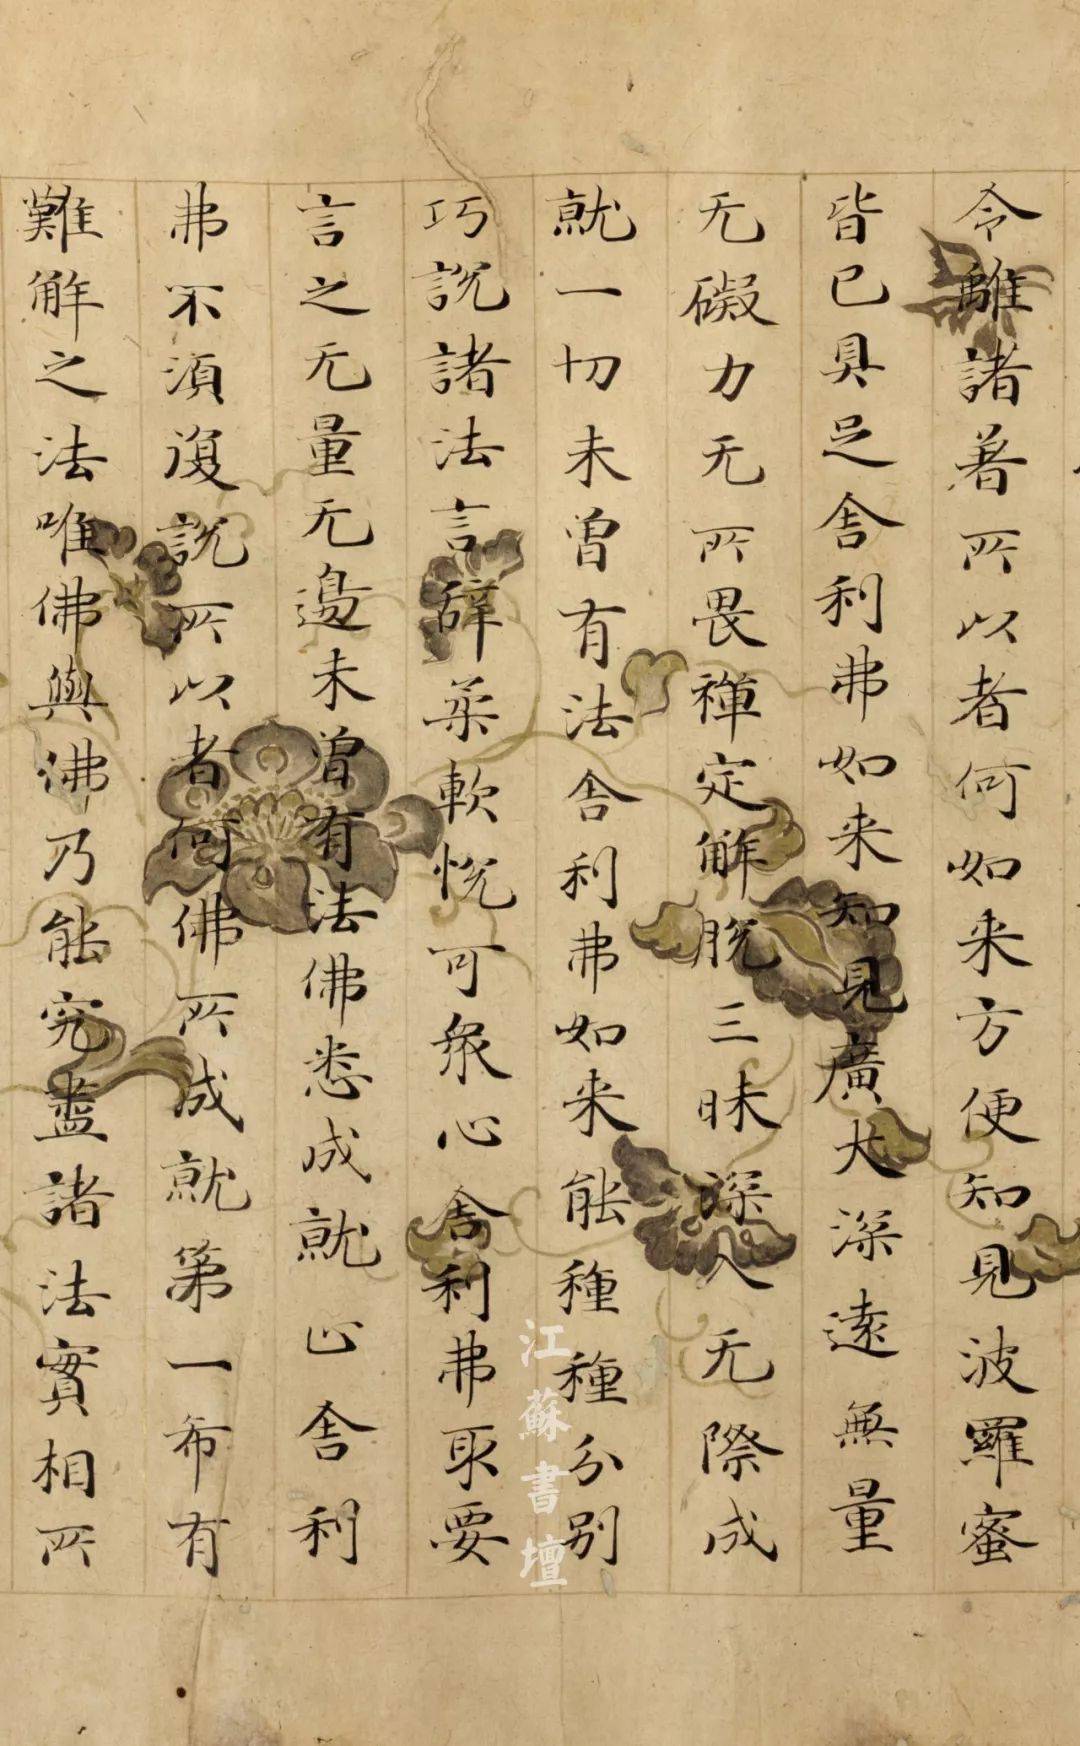 令離諸著所以者何如来方便知見波羅蜜
皆已具足舍利弗如来知見廣大深遠無量
无礙力无所畏禅定解脱三昧深入无際成
就一切未曽有法舍利弗如来能種種分別
巧説諸法言辞柔軟悦可衆心舍利弗取要
言之无量无邊未曽有法佛悉成就止舍利
弗不須復説所以者何佛所成就第一希有
難解之法唯佛與佛乃能究盡諸法實相所
江蘇書壇